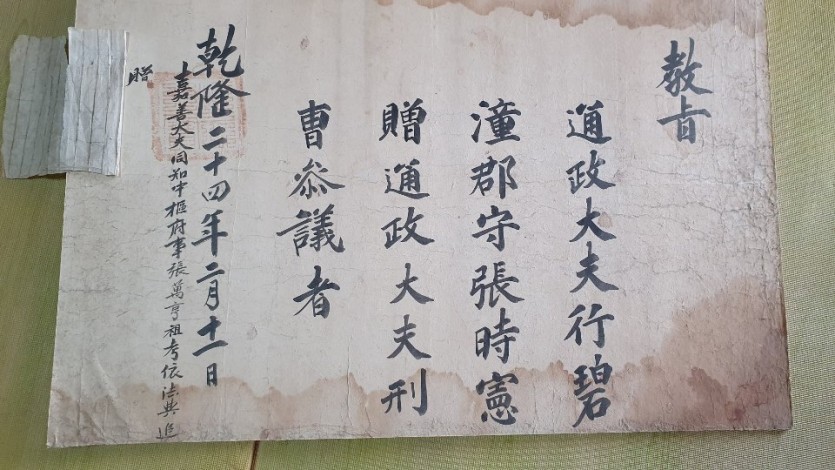 教旨
通政大夫行碧
潼郡守張時憲
贈通政大夫刑
曹叅議者
乾隆二十四年二月十一日
嘉善大夫同知中樞府事張萬亨祖考依法典追
贈